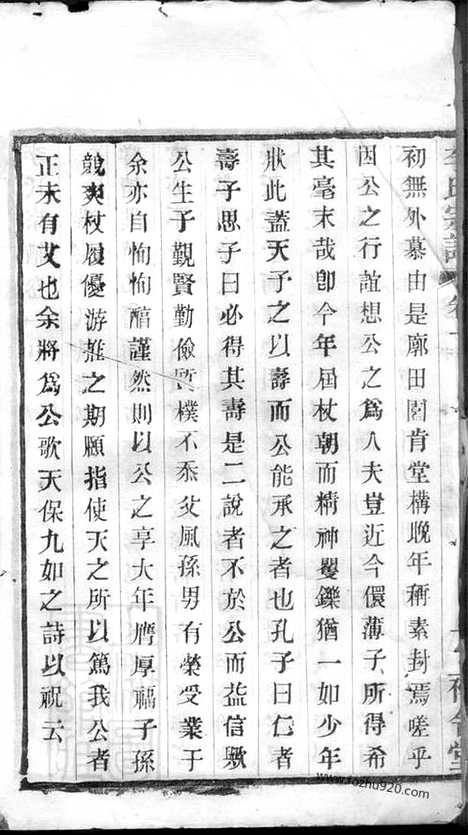 初無外慕由是廓田園肯堂構晚年稱素封焉嗟乎
因公之行誼想公之為人夫豈近今儇薄子所得希
其毫末哉卽今年屆杖朝而精神矍鑠猶一如少年
狀此蓋天予之以壽而公能承之者也孔子曰仁者
壽子思子曰必得其壽是二說者不於公而益信歟
公生于觀賢勤儉質樸不忝父風孫男有榮受業于
余亦自恂恂醇謹然則以公之享大年膺厚福子孫
競爽杖履優游雖之期頤指使天之所以篤我公者
正未有艾也余將為公歌天保九如之詩以祝云
www.fozhu920.com